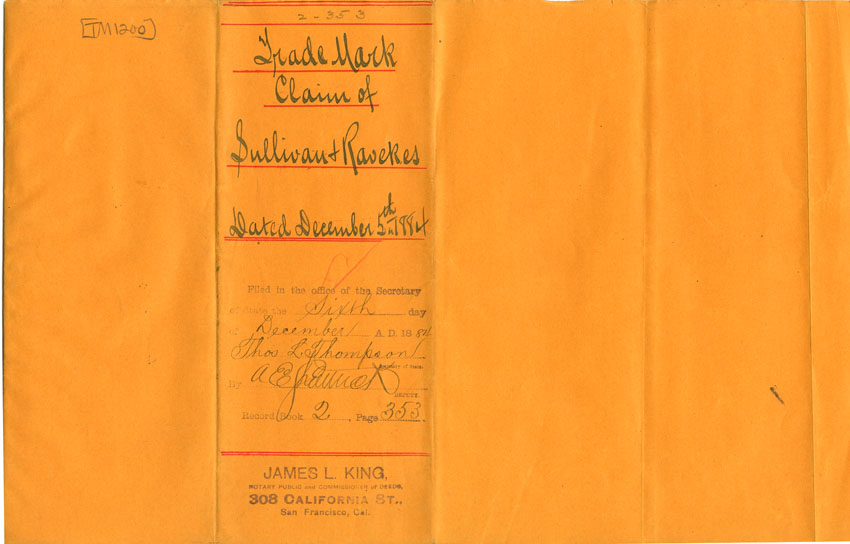 [TM1200]
2-353
Trade Mark
Claim of
Sullivan & Ravekes
Dated December 5th 1884
Filed in the office of the Secretary
of State the Sixth day
of December A. D. 1884
Thos. L. Thompson
Secretary of State.
By A E
DEPUTY.
Record Book 2, Page 353.
JAMES L. KING,
NOTARY PUBLIC and COMMISSIONER of DEEDS,
308 CALIFORNIA ST.,
San Francisco, Cal.